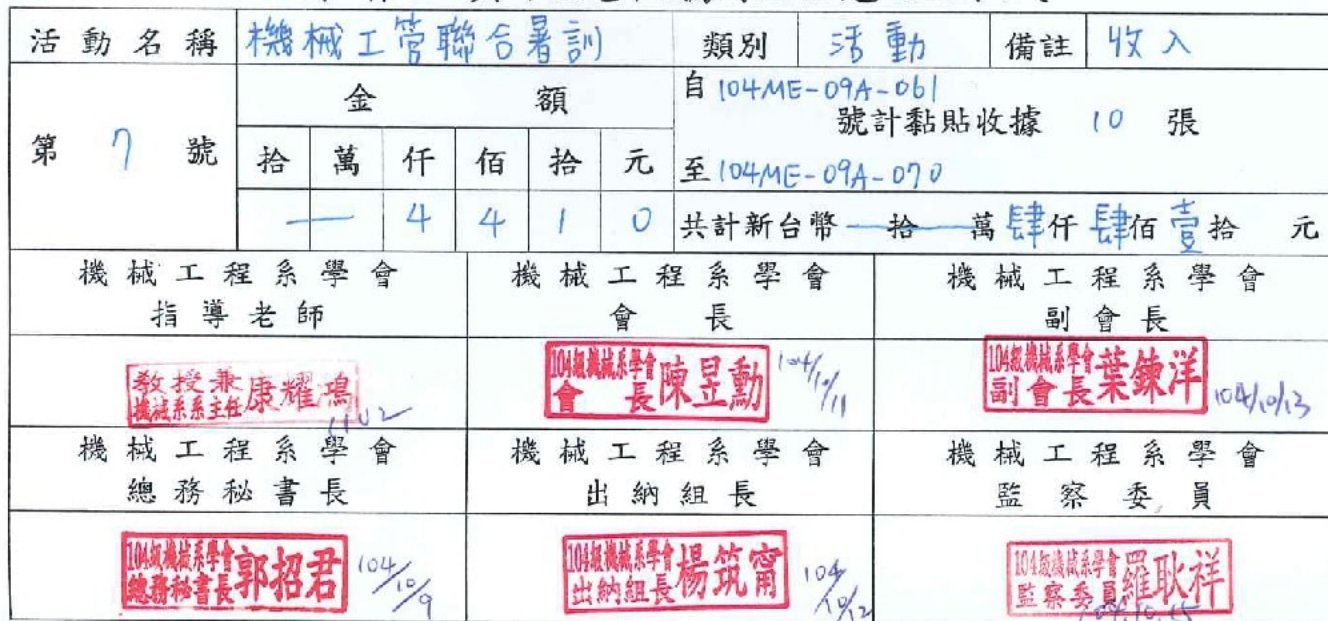 活動名稱 機械工管聯合暑訓 類別 活動 備註 收入
第 7 號
金額
拾 萬 仟 佰 拾 元
一 4 4 1 0
自 104ME-09A-061
號計黏貼收據 10 張
至 104ME-09A-070
共計新台幣 拾 萬 肆仟 肆佰 壹拾 元
機械工程系學會 機械工程系學會 機械工程系學會
指導老師 會長 副會長
教授兼 機械系系主任 康耀鴻 1102
104級機械系學會 會長 陳昱勳 104/10/11
104級機械系學會 副會長 葉鍊洋 104/10/13
機械工程系學會 機械工程系學會 機械工程系學會
總務秘書長 出納組長 監察委員
104級機械系學會 總務秘書長 郭招君 104/10/9
104級機械系學會 出納組長 楊筑甯 104/10/12
104級機械系學會 監察委員 羅耿祥 104.10.15